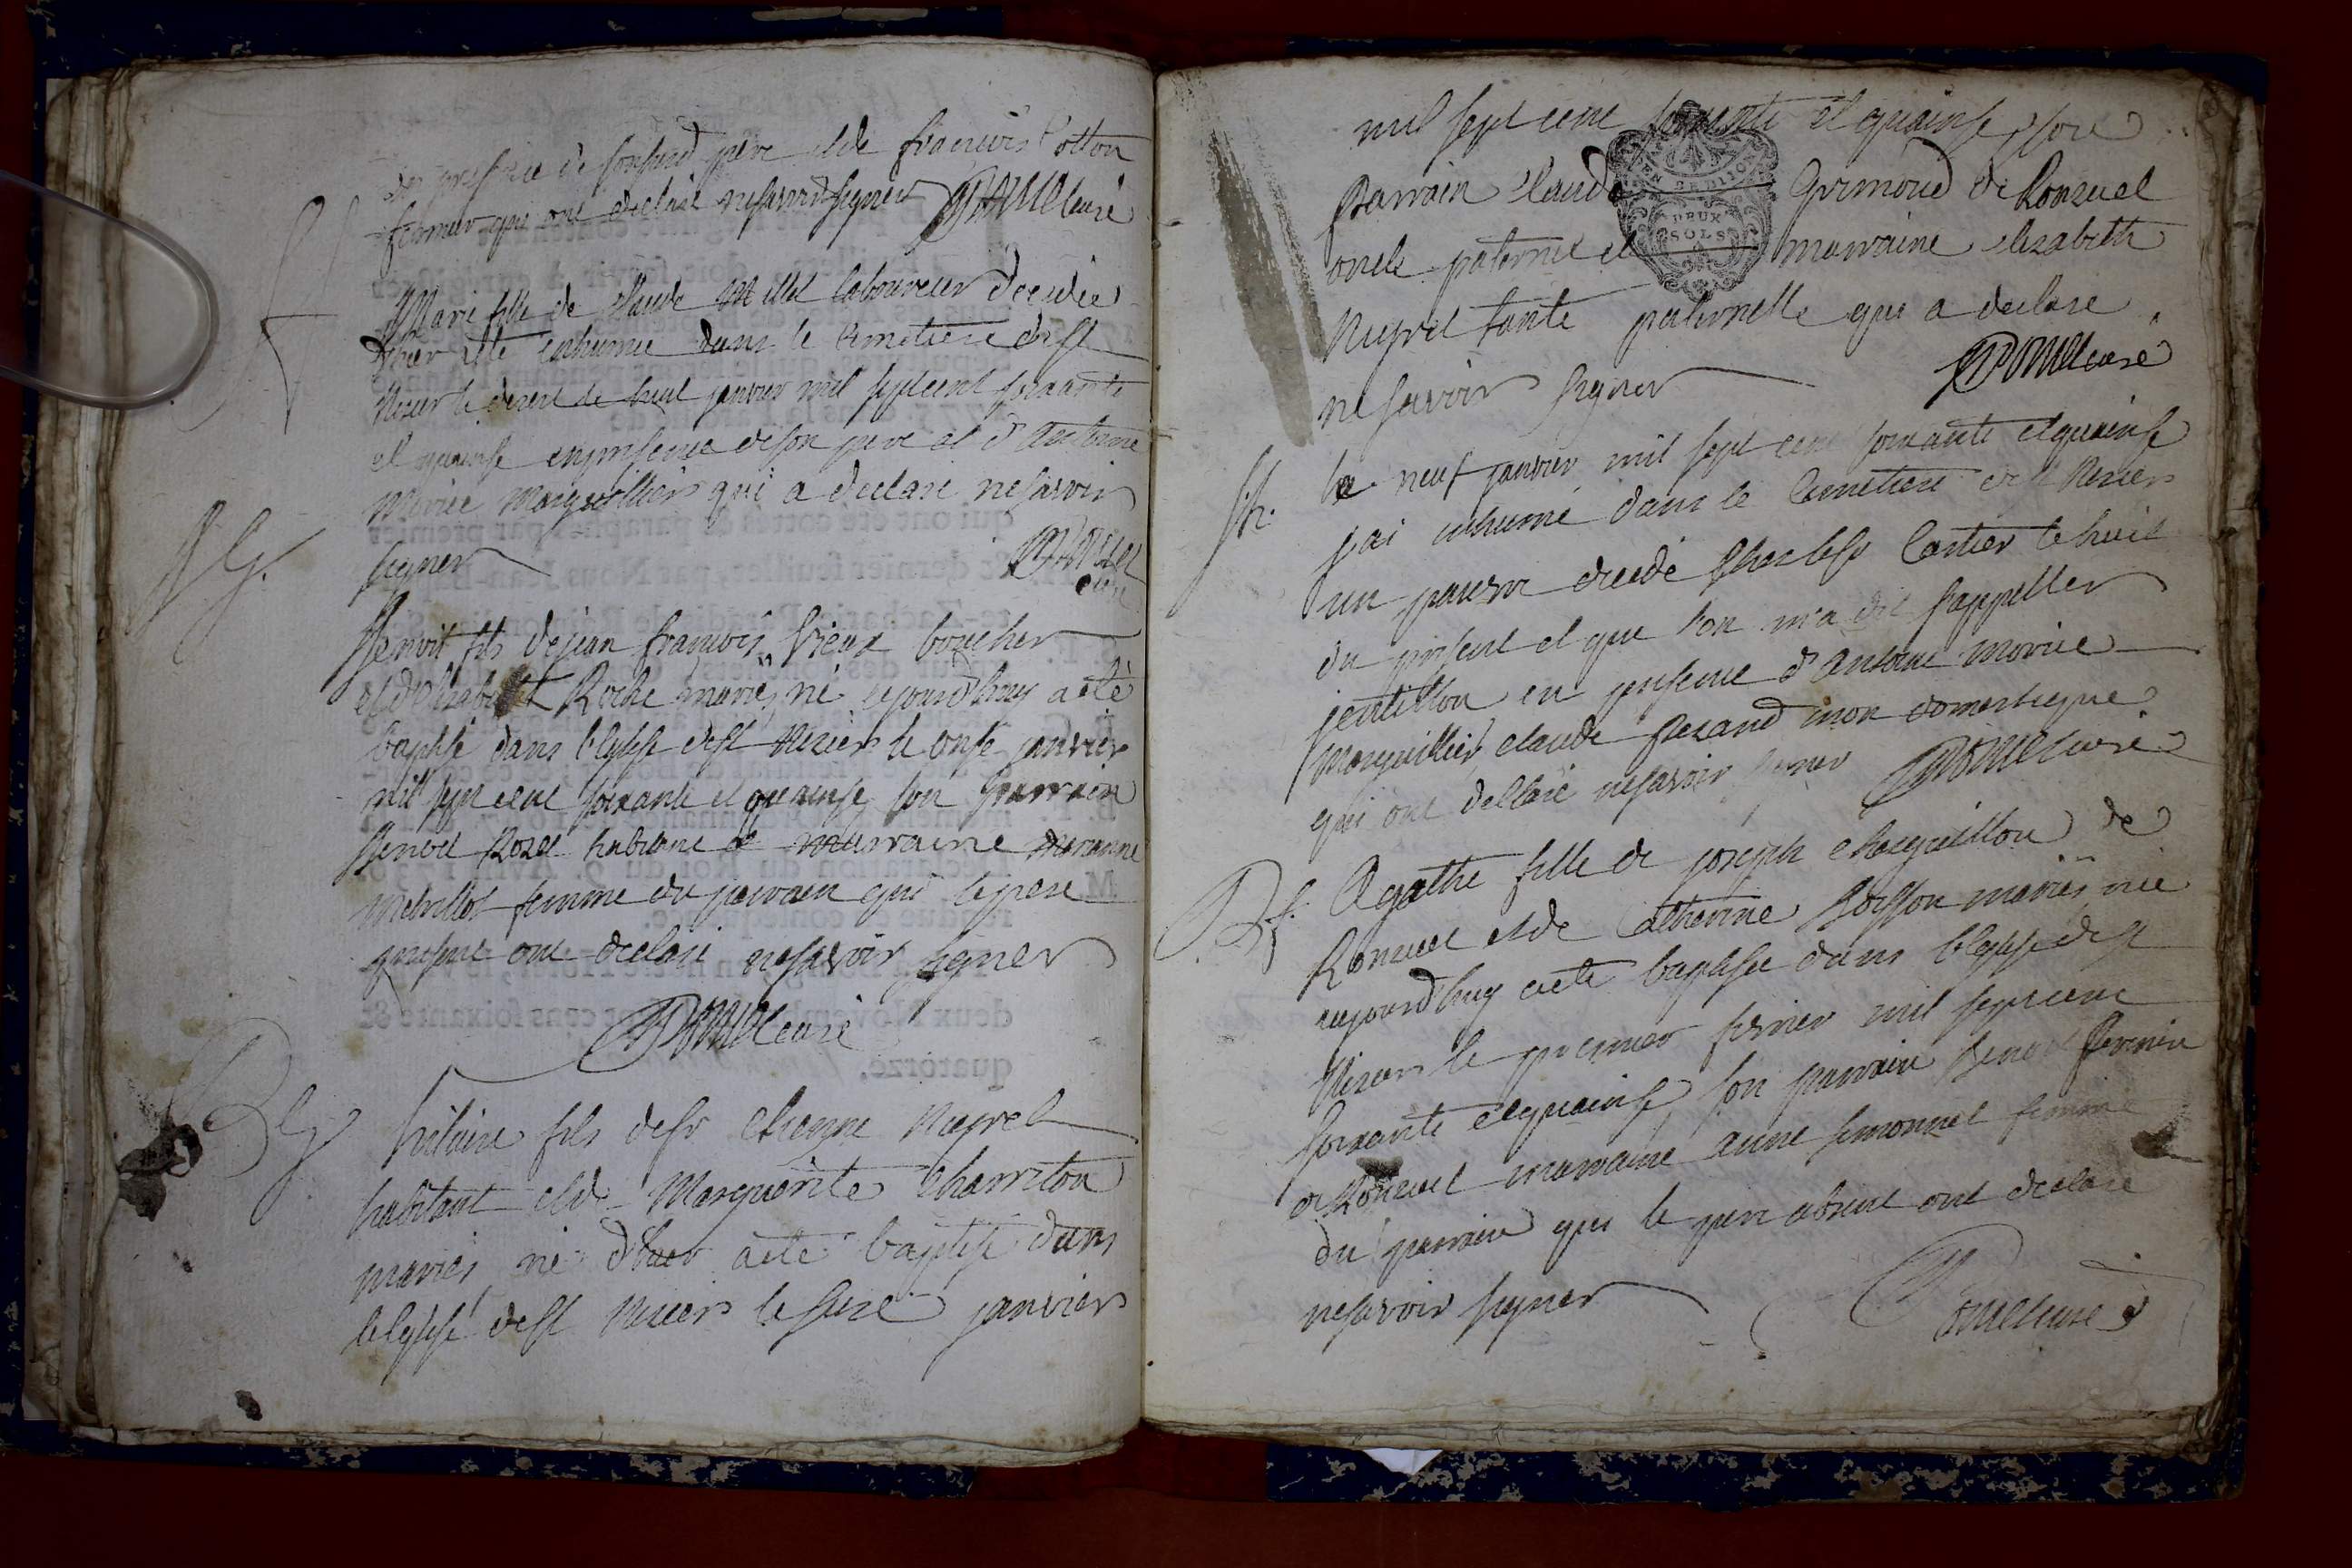 en presence de son pere et de francois Cotton
fermier qui ont declaré ne savoir signer curé
Marie fille de claude Millet laboureur decedée
d'hier a été enhumée dans le cimetiere de st
Nisier le janvier mil sept cent soixante
et quainse en presence de son pere et d'Antoine
Morier marguillier qui a declaré ne savoir
signer
curé
Benoit fils de jean francois Vieux boucher
et d' Roche mariés né aujourd'huy a été
baptisé dans l'eglise de st Nisier le onse janvier
mil sept cent soixante et quainse son parrain
Benoit Rozet habitant et marraine marianne
femme du parrain qui le pere
present ont declaré ne savoir signer
curé
B g
hilaire fils de sr etienne Nugret
habitant et de Marguerite Charreton
mariés né d'hier a été baptisé dans
l'eglise de st Nisier le seize janvier
mil sept cent soixante et quainse son
EN DE DIJON
DEUX
SOLS
parrain claude Grimoud de Ronzuel
oncle paternel et marraine elizabeth
Nugret tante paternelle qui a declaré
ne savoir signer
curé
le neuf janvier mil sept cent soixante et quainse
j'ai enhumé dans le cimetiere de st Nisier
un pauvre decedé chez le sr Cartier le huit
du present et que l'on m'a dit s'appeller
jentillon en presence d'antoine morier
marguillier claude ferand mon domestique
qui ont declaré ne savoir signer curé
B f.
Agathe fille de joseph chaquillon de
Ronzuel et de Catherine mariés née
aujourd'huy a été baptisée dans l'eglise de st
Nisier le premier fevrier mil sept cent
soixante et quainse son parrain benoit
de Ronzuel marraine anne simonnet femme
du parrain qui le pere absent ont declaré
ne savoir signer
curé